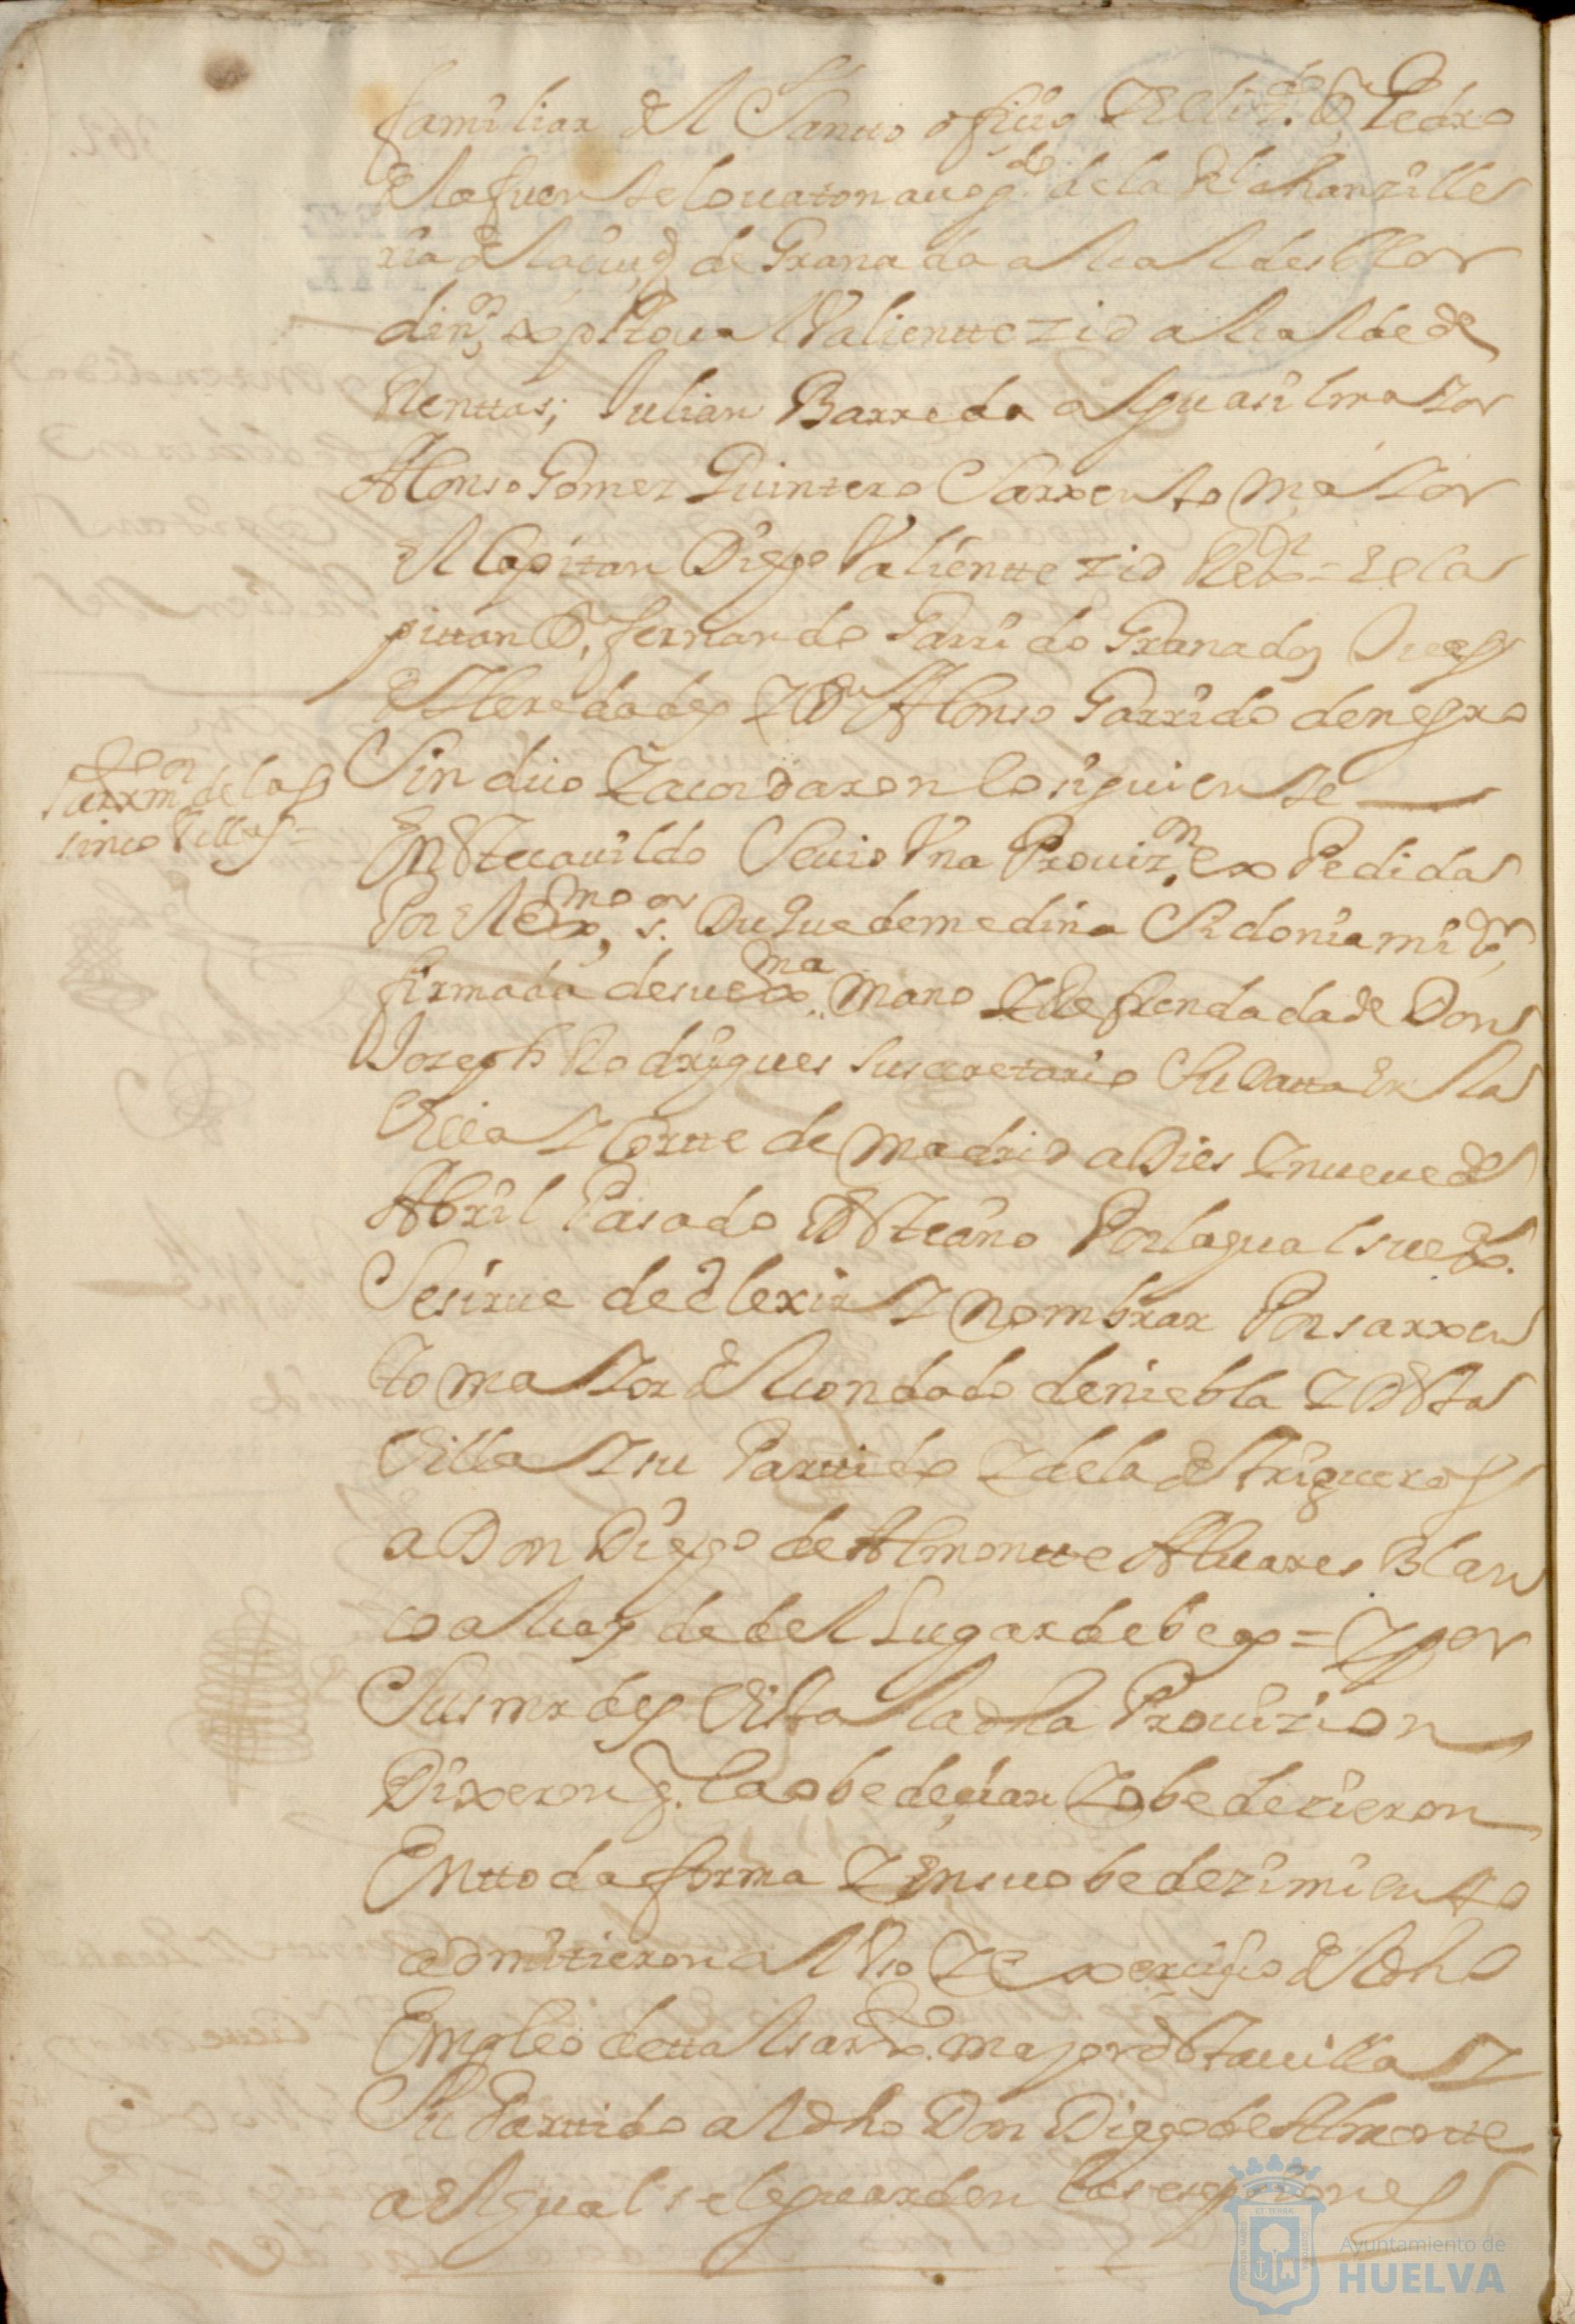 familiar del Santto ofiçio Y el liz.do D, Pedro
de la fuente lovaton auog.do de la Rl chanzille
ria de la çiud de Granada alcaldes Hor
din.os xptoual Valientte zid alcalde de
Renttas; Julian Barreda alguasil maYor
Alonso Gomez Quintero Sarxento maYor
el Capitan Diego Valientte zid Rexor = Y el Ca
pittan D, fernando Garrido Granados Jues
de Heredades Y Dn Alonso Garrido de negro
Sindico Y acordaron lo siguiente
Sarxmor de las
sinco Villas =
En Este cauildo Se vio Vna Prouizn, expedida
Por el exmo, sor Duque de medina Sidonia mi sr,
firmada de su exma, mano Y Refrendada de Don
Jozeph Rodrigues su secretario Su Datta En la
Villa Y Cortte de Madrid a Dies Y nueue de
Abril Pasado de Este año Por la qual su exa.
Se sirue de elexir Y nombrar Por sarxen
to maYor del condado de niebla Y de Esta
Villa Y su Parttido Y de la de Trigueros
a Don Diego de Almontte Aluares Blan
co alcayde del Lugar de beas = Y por
Sus mrdes Vista la dha Prouizion
Dixeron q. la obedeçian Y obedezieron
En ttoda forma Y En su obedezimiento
admitieron al Vso Y exerçiçio del dho
Empleo de ttal sarxto. mayor de Esta villa Y
Su Parttido al dho Don Diego de Almontte
a el qual se le guarden las exepçiones
Ayuntamiento de
HUELVA